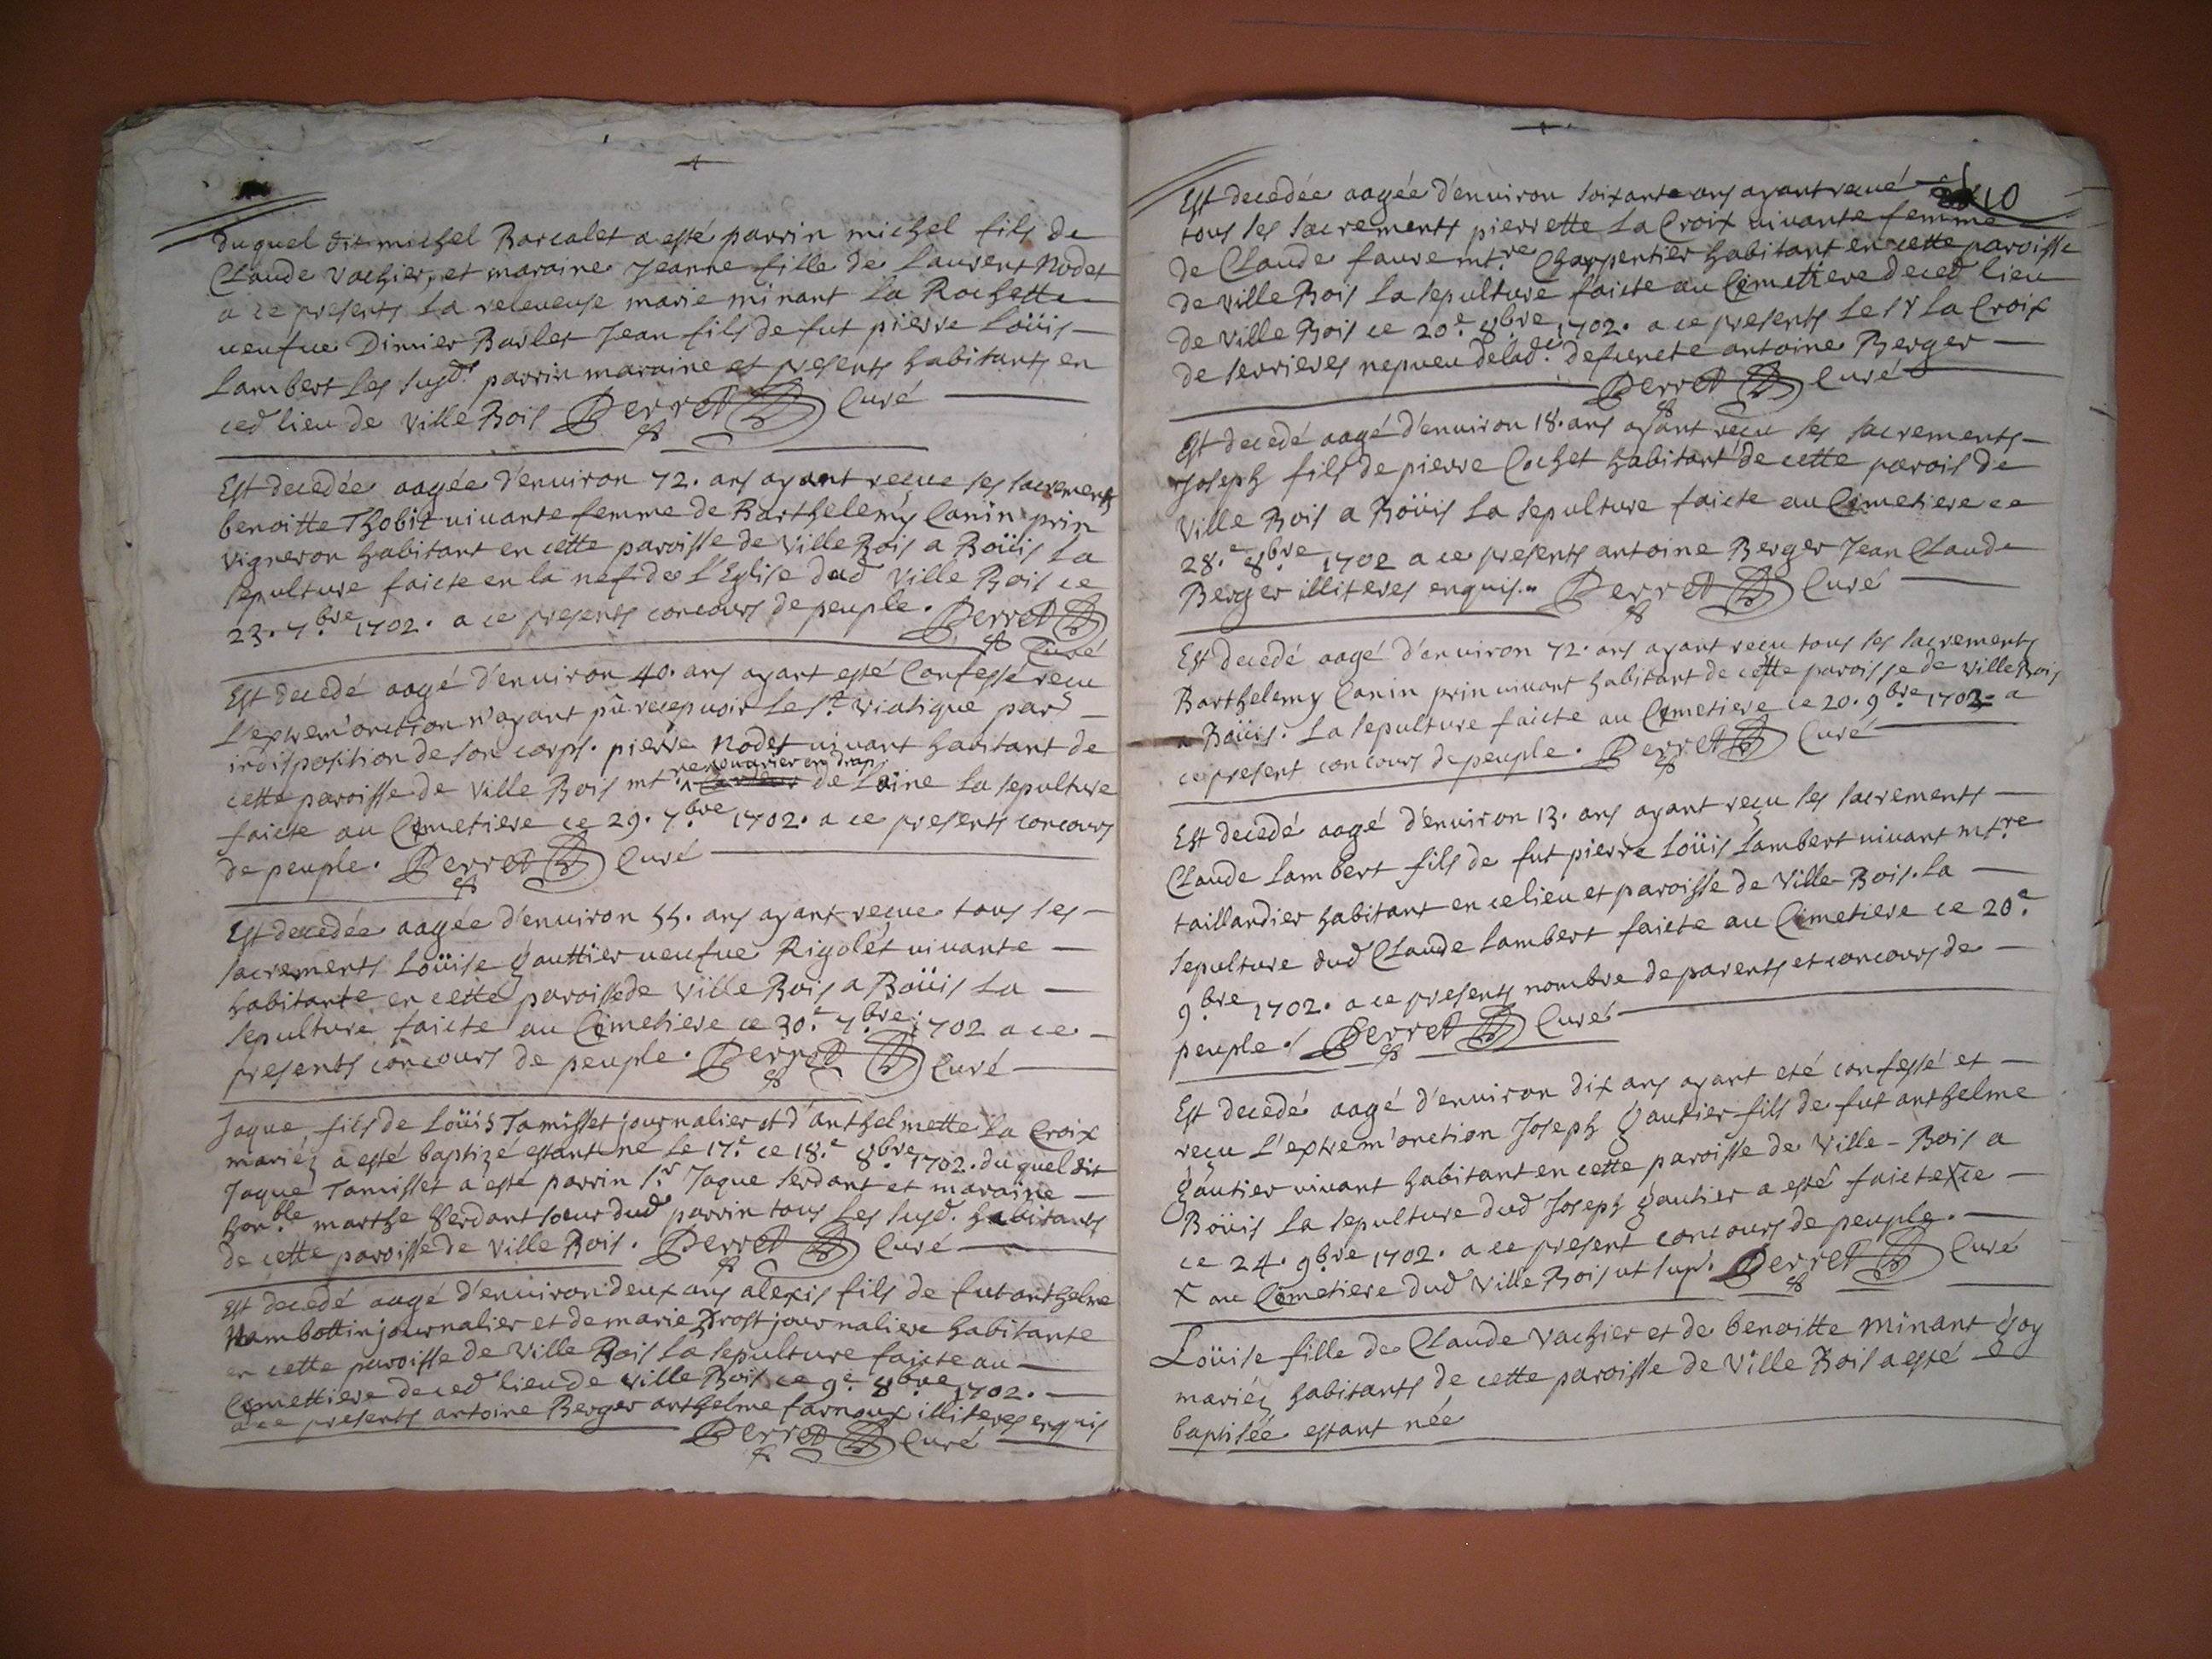 duquel dit michel Barcalet a esté parrin michel fils de
Claude Vachier, et maraine Jeanne fille de Laurent Nodet
a ce presents la releveuse marie minant La Rochette
veufue Dimier Barlet Jean fils de fut pierre Loüis
Lambert les susd.s parrin maraine et presents habitants en
ced lieu de Ville Bois Perret Curé
Est decedée aagée d'enuiron 72. ans ayant reçue ses sacrements
benoitte Thobit viuante femme de Barthelemy Canin prin
Vigneron habitant en cette paroisse de Ville Bois a Boüis La
sepulture faicte en la nef de L'Eglise dud Ville Bois ce
23. 7.bre 1702. a ce presents concours de peuple. Perret
Curé
Est decedé aagé d'enuiron 40. ans ayant esté Confessé reçu
L'extrem'onction n'ayant pû recepuoir le S.t Viatique par
indisposition de son corps. pierre Nodet viuant habitant de
cette paroisse de Ville Bois mt en drap de Laine La sepulture
faicte au Cimetiere ce 29. 7.bre 1702. a ce presents concours
de peuple. Perret Curé
Est decedée aagée d'enuiron 55. ans ayant reçue tous ses
sacrements Loüise Gauttier veufue Rigolet viuante
habitante en cette paroisse de Ville Bois a Boüis La
sepulture faicte au Cimetiere ce 30.e 7.bre 1702 a ce
presents concours de peuple. Perret Curé
Jaque fils de Loüis Tamisset journalier et d'anthelmette La Croix
mariéz a esté baptizé estant né Le 17.e ce 18.e 8.bre 1702. duquel dit
Jaque Tamisset a esté parrin S.r Jaque Serdant et maraine
hon.ble marthe Serdant sœur dud parrin tous Les susd. habitants
de cette paroisse de Ville Bois. Perret Curé
Est decedé aagé d'enuiron deux ans alexis fils de fut anthelme
Nambottin journalier et de marie Trost journaliere habitante
en cette paroisse de Ville Bois La sepulture faicte au
Cimettiere de ced lieu de Ville Bois ce 9.e 8.bre 1702.
a ce presents antoine Berger anthelme farnoux illiteres enquis
Perret Curé
10
Est decedée aagée d'enuiron soixante ans ayant reçué
tous ses sacrements pierrette La Croix viuante femme
de Claude faure mt.re Charpentier habitant en cette paroisse
de Ville Bois La sepulture faicte au Cimetiere de ced lieu
de Ville Bois ce 20.e 8.bre 1702. a ce presents Le Sr La Croix
de serrieres nepueu de lad.e defuncte antoine Berger
Perret Curé
Est decedé aagé d'enuiron 18. ans ayant reçu ses sacrements
Joseph fils de pierre Cochet habitant de cette parois de
Ville Bois a Boüis La sepulture faicte au Cimetiere ce
28.e 8.bre 1702 a ce presents antoine Berger Jean Claude
Berger illiteres enquis. Perret Curé
Est decedé aagé d'enuiron 72. ans ayant reçu tous ses sacrements
Barthelemy Canin prin viuant habitant de cette paroisse de Ville Bois
a Boüis. La sepulture faicte au Cimetiere ce 20. 9.bre 1702. a
ce present concours de peuple. Perret Curé
Est decedé aagé d'enuiron 13. ans ayant reçu ses sacrements
Claude Lambert fils de fut pierre Loüis Lambert viuant mt.re
taillandier habitant en ce lieu et paroisse de Ville-Bois. La
sepulture dud Claude Lambert faicte au Cimetiere ce 20.e
9.bre 1702. a ce presents nombre de parents et concours de
peuple. Perret Curé
Est decedé aagé d'enuiron dix ans ayant eté confessé et
reçu L'extrem'onction Joseph Gautier fils de fut anthelme
Gautier viuant habitant en cette paroisse de Ville-Bois a
Boüis La sepulture dud Joseph Gautier a esté faicte x ce
ce 24. 9.bre 1702. a ce present concours de peuple.
x au Cimetiere dud Ville Bois ut sup. Perret Curé
Loüise fille de Claude Vachier et de benoitte Minant Goy
mariéz habitants de cette paroisse de Ville Bois a esté
baptisée estant née